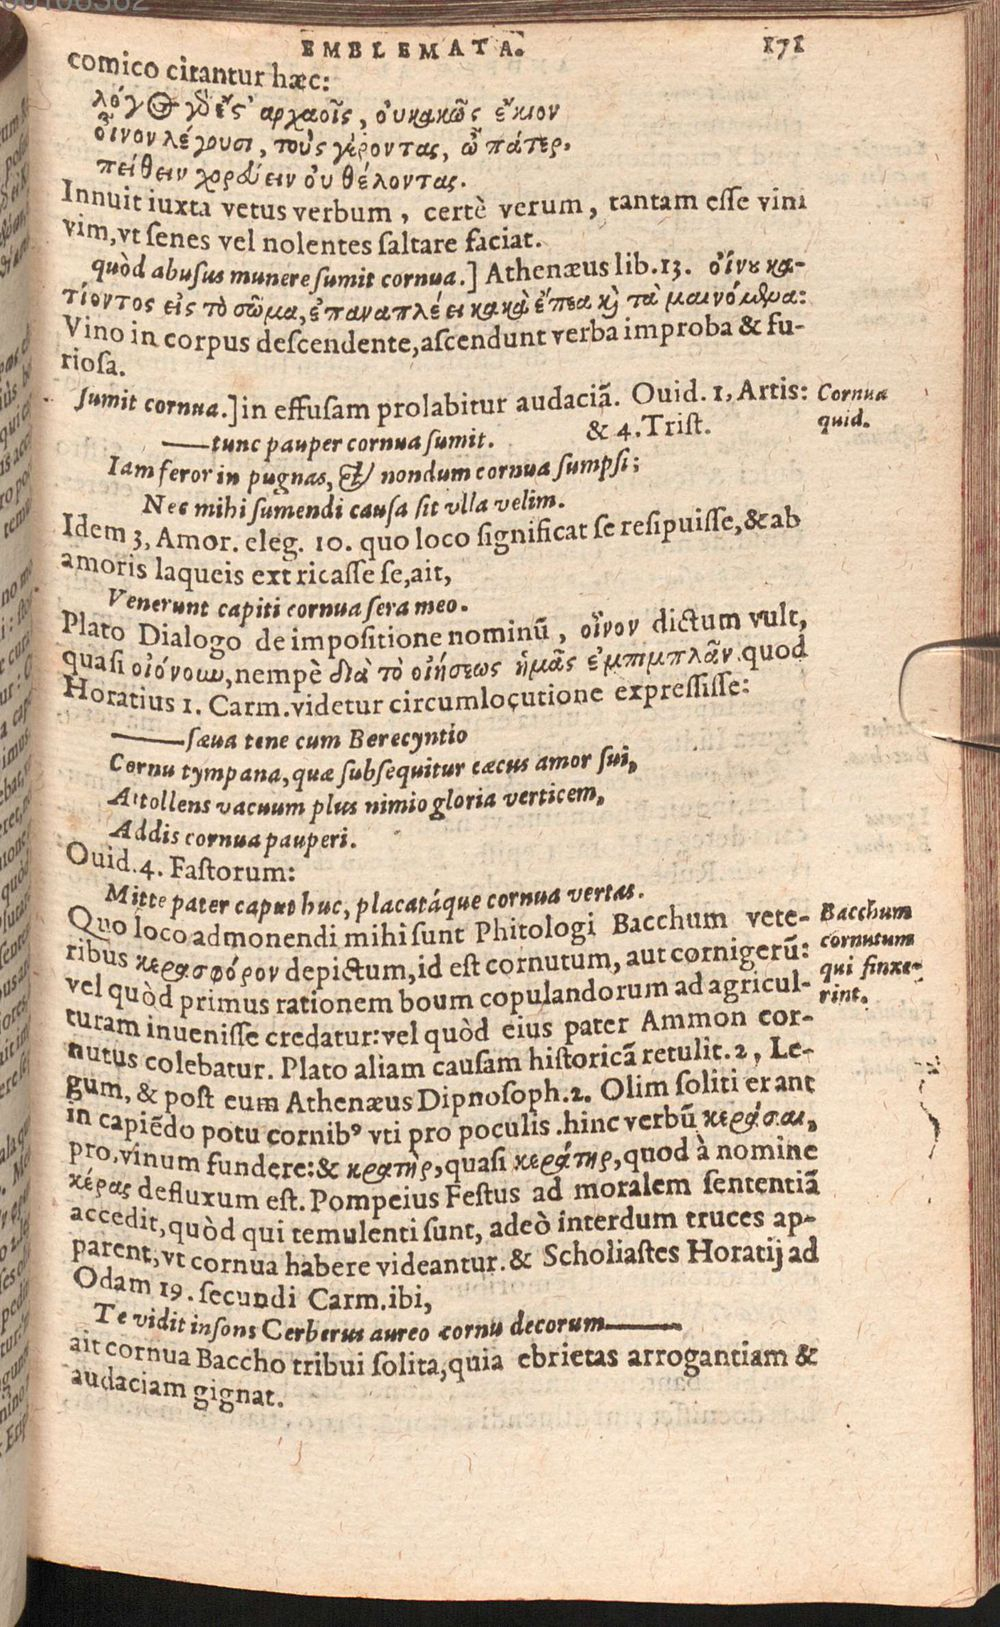 EMBLEMATA. 171
comico citantur hæc:
λόγος γδ εἴς' αρχαοῖς, ὀυκακῶς ἔχιον
οἶνον λέγουσι, τοὺς γέροντας, ὦ πάτερ,
πείθειν χορδύειν ὀυ θέλοντας.
Innuit iuxta vetus verbum, certè verum, tantam esse vini
vim, vt senes vel nolentes saltare faciat.
quòd abusus munere sumit cornua.] Athenæus lib. 13. οἴνου κα-
τίοντος εἰς τὸ σῶμα, ἐπαναπλέει κακὰ ἔπεα κὴ τὰ μαινόμθμα:
Vino in corpus descendente, ascendunt verba improba & fu-
riosa.
sumit cornua.] in effusam prolabitur audaciã. Ouid. 1, Artis:
Cornua
quid.
——tunc pauper cornua sumit. & 4. Trist.
Iam feror in pugnas, & nondum cornua sumpsi;
Nec mihi sumendi causa sit vlla velim.
Idem 3, Amor. eleg. 10. quo loco significat se resipuisse, & ab
amoris laqueis extricasse se, ait,
Venerunt capiti cornua sera meo.
Plato Dialogo de impositione nominũ, οἶνον dictum vult,
quasi οἰόνουν, nempè διὰ τὸ οἰήσεως ἡμᾶς ἐμπιμπλᾶν quod
Horatius 1. Carm. videtur circumlocutione expressisse:
——sæua tene cum Berecyntio
Cornu tympana, quæ subsequitur cæcus amor sui,
Attollens vacuum plus nimio gloria verticem,
Addis cornua pauperi.
Ouid. 4. Fastorum:
Mitte pater caput huc, placatáque cornua vertas.
Quo loco admonendi mihi sunt Phitologi Bacchum vete-
ribus κερασφόρον depictum, id est cornutum, aut cornigerũ:
Bacchum
cornutum
qui finxe-
rint.
vel quòd primus rationem boum copulandorum ad agricul-
turam inuenisse credatur: vel quòd eius pater Ammon cor-
nutus colebatur. Plato aliam causam historicã retulit. 2, Le-
gum, & post eum Athenæus Dipnosoph. 2. Olim soliti erant
in capiẽdo potu cornibꝰ vti pro poculis. hinc verbũ κεράσαι,
pro, vinum fundere: & κρατὴρ, quasi κεράτηρ, quod à nomine
κέρας defluxum est. Pompeius Festus ad moralem sententiã
accedit, quòd qui temulenti sunt, adeò interdum truces ap-
parent, vt cornua habere videantur. & Scholiastes Horatij ad
Odam 19. secundi Carm. ibi,
Te vidit insons Cerberus aureo cornu decorum——
ait cornua Baccho tribui solita, quia ebrietas arrogantiam &
audaciam gignat.